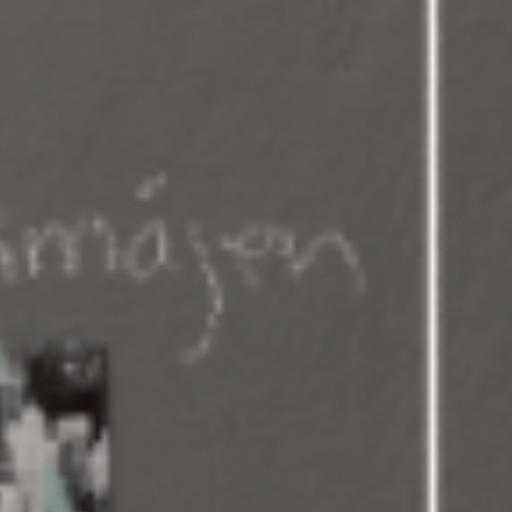 imágen